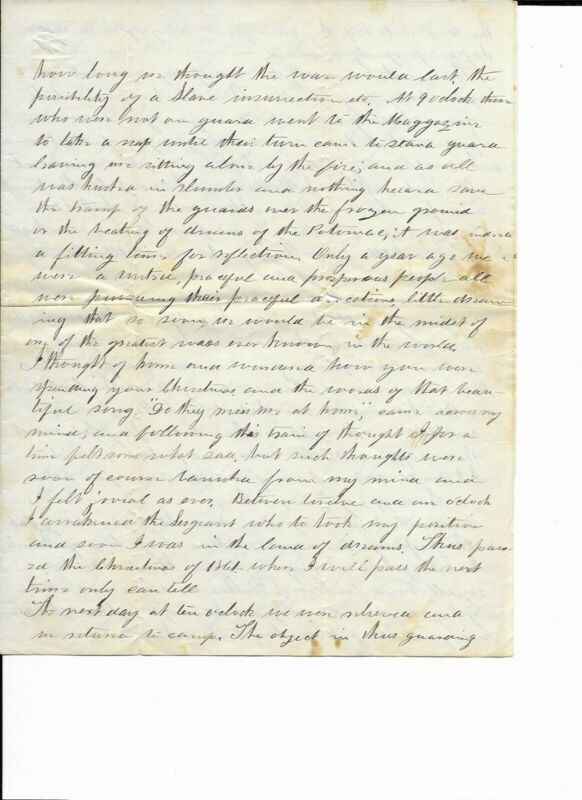 how long we thought the war would last, the
posibility of a Slave insurrection etc. At 9 oclock those
who were not on guard went to the Maggazine
to take a nap until their turn came to stand guard
leaving me sitting alone by the fire; and as all
was hushed in slumber and nothing heard save
the tramp of the guards over the frozen ground
or the beating of drums of the Potomac, it was indeed
a fitting time for reflection, Only a year ago we
were a united, peaceful and prosperous people all
were pursuing their peaceful avocations, little dream
ing that so soon we would be in the midst of
one of the greatest wars ever known in the world.
I thought of home and wondered how you were
spending your Christmas, and the words of that beau-
tiful song, "Do they miss me at home," came across my
mind; and following this train of thought I for a
time felt some what sad, but such thoughts were
soon of course banished from my mind and
I felt jovial as ever. Between twelve and one oclock
I awakened the Sergeant who to took my position
and soon I was in the land of dreams. Thus pass
ed the Christmas of 1861. where I will pass the next
time only can tell
The next day at ten oclock we were relieved and
we returned to camp. The object in thus guarding